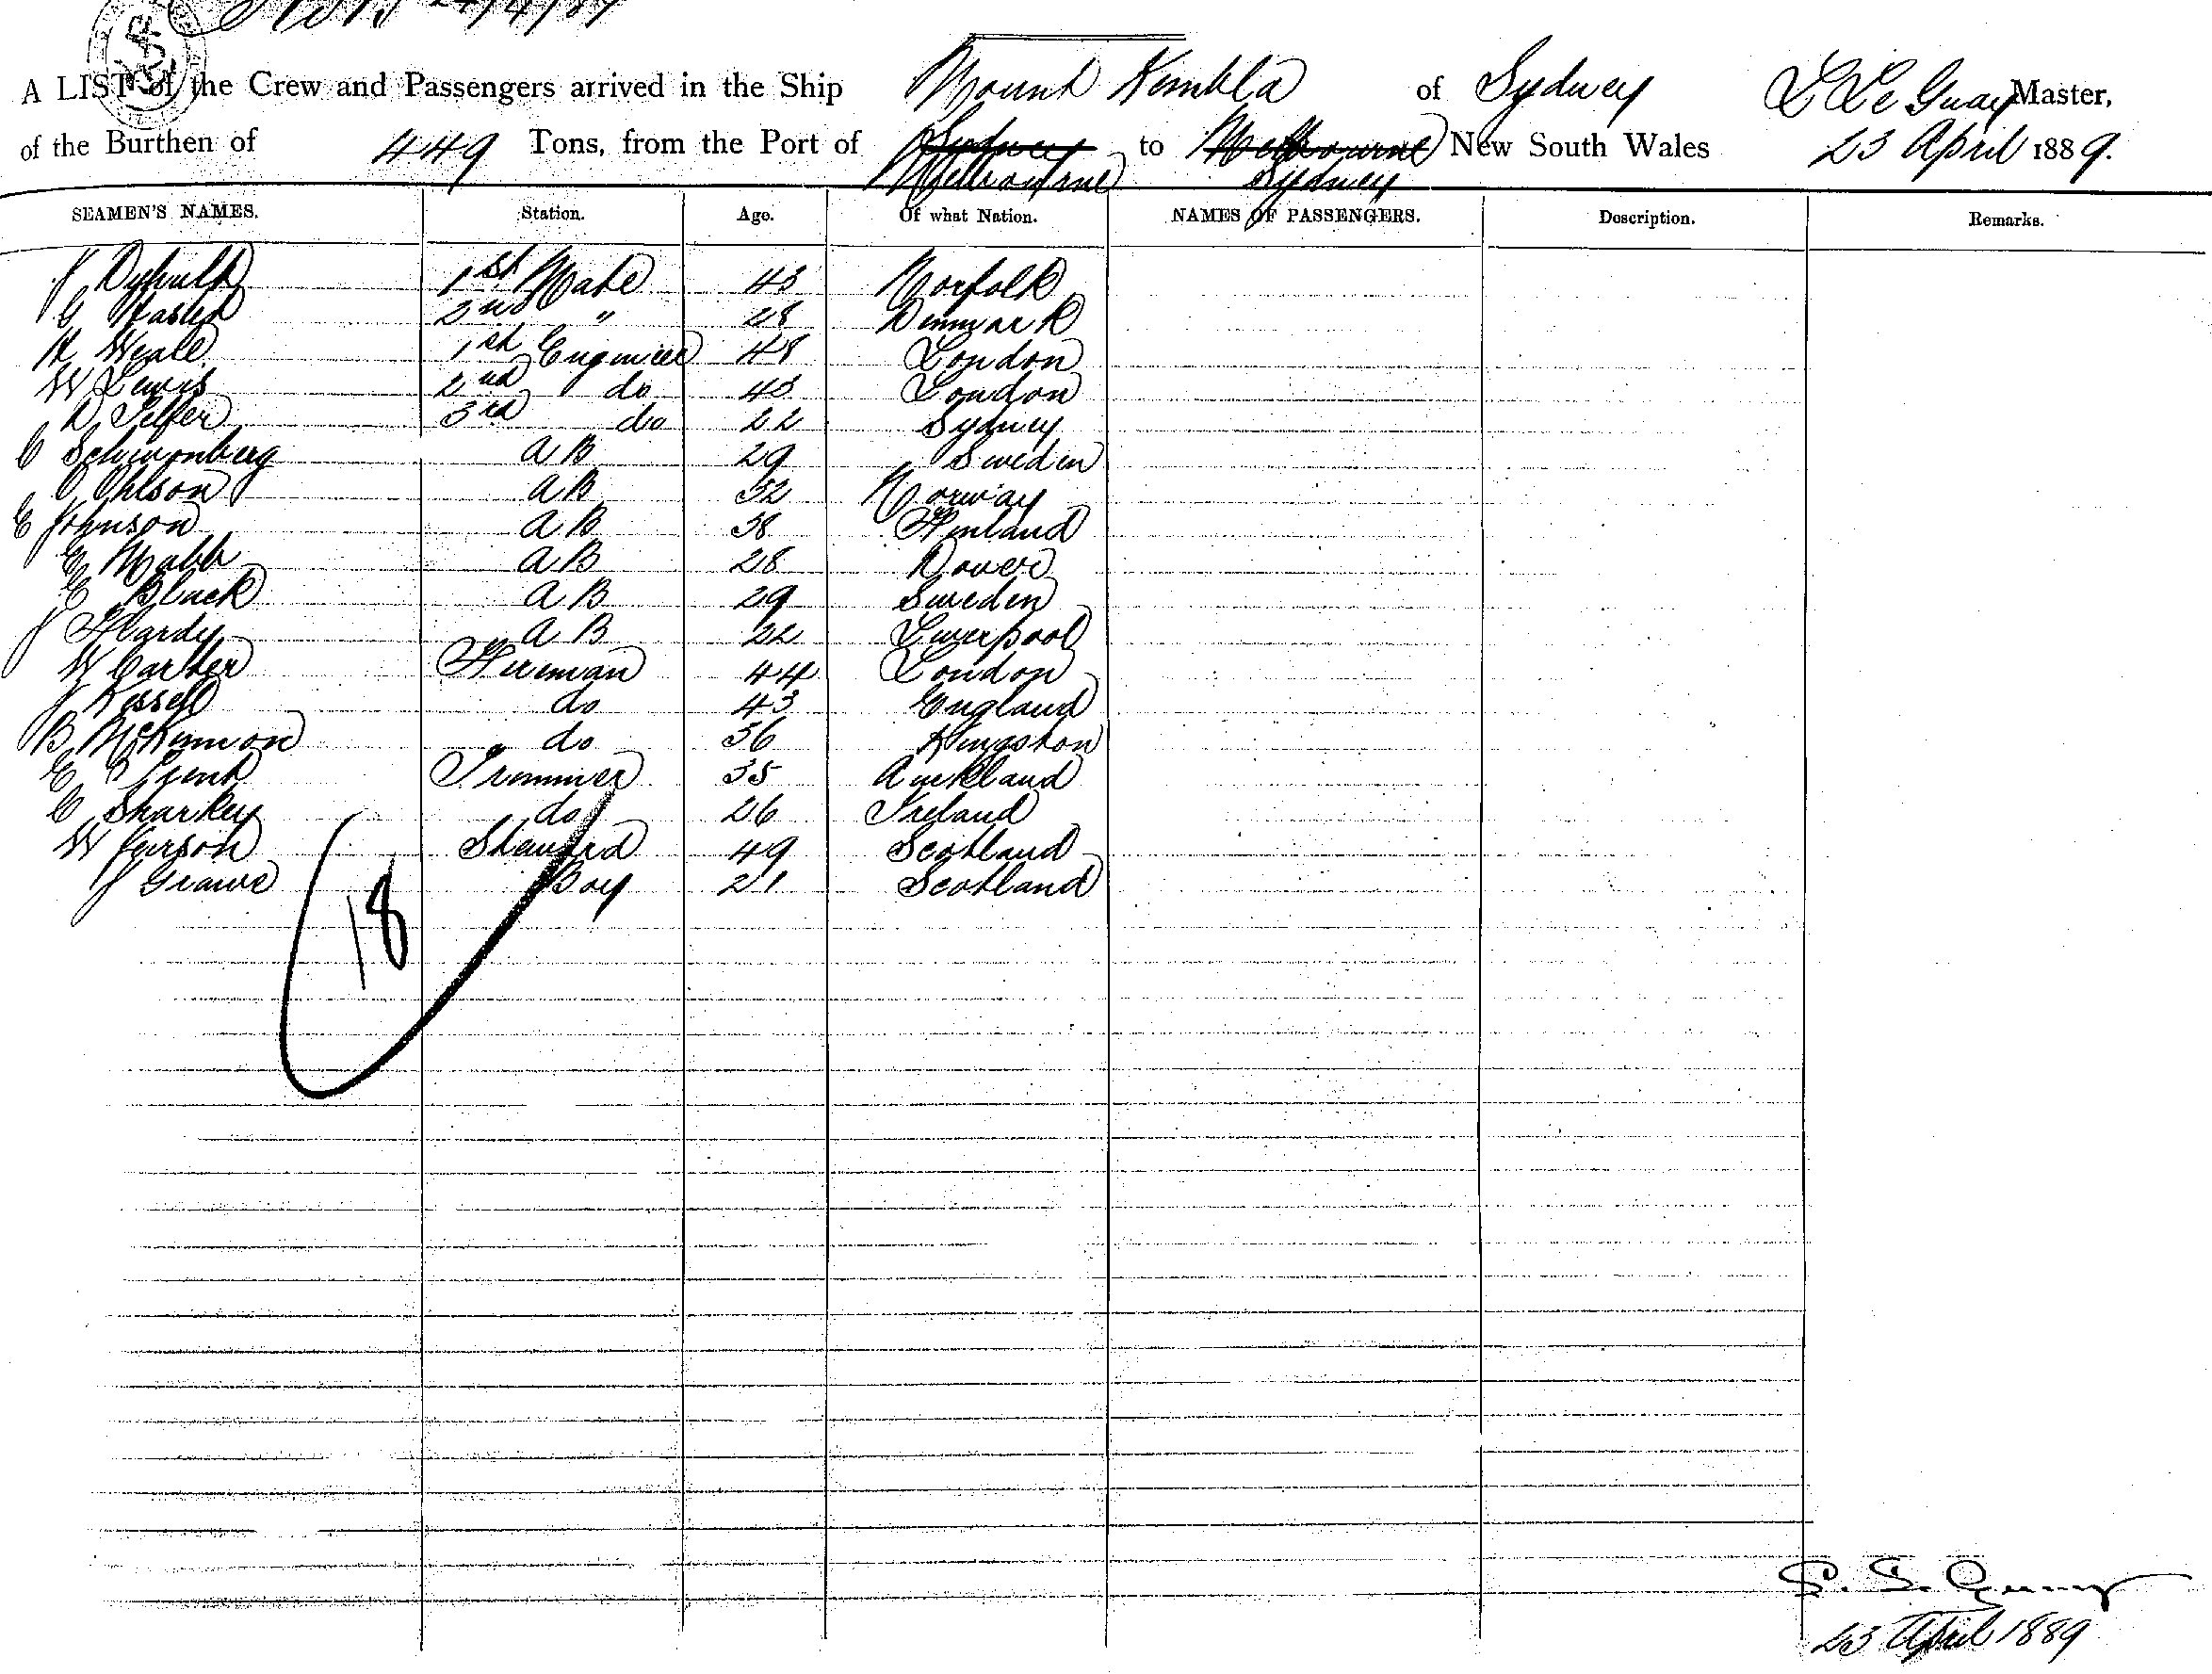 24/4/89
A LIST of the Crew and Passengers arrived in the Ship Mount Kembla of Sydney L Le Guay Master,
of the Burthen of 449 Tons, from the Port of Sydney to Melbourne New South Wales 23 April 1889.
Melbourne Sydney
SEAMEN'S NAMES. Station. Age. Of what Nation. NAMES OF PASSENGERS. Description. Remarks.
J 1st Mate 43 Norfolk
G 2nd " 28 Denmark
H Weale 1st Engineer 48 London
W Lewis 2nd do 43 London
D Telfer 3rd do 22 Sydney
C Schwonberg A B 29 Sweden
C Ohlson A B 32 Norway
E Johnson A B 38 Finland
E Mabb A B 28 Dover
C Black A B 29 Sweden
J Hardy A B 22 Liverpool
W Carter Fireman 44 London
J Kessell do 43 England
B McKinnon do 36 Kingston
E Trimmer 35 Auckland
C Sharkey do 26 Ireland
W Steward 49 Scotland
J Boy 21 Scotland
18
23 April 1889